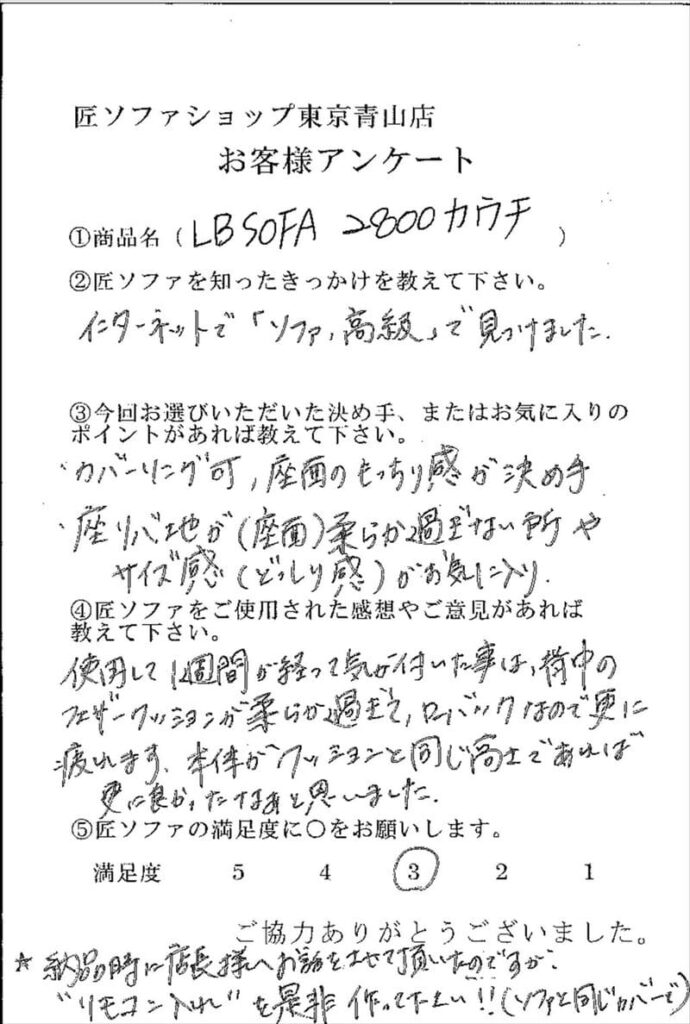 匠ソファショップ東京青山店
お客様アンケート
①商品名（LBSOFA 2800カウチ）
②匠ソファを知ったきっかけを教えて下さい。
インターネットで「ソファ,高級」で見つけました.
③今回お選びいただいた決め手、またはお気に入りの
ポイントがあれば教えて下さい。
・カバーリング可,座面のもっちり感が決め手
・座り心地が(座面)柔らか過ぎない所や
サイズ感(どっしり感)がお気に入り.
④匠ソファをご使用された感想やご意見があれば
教えて下さい。
使用して1週間が経って気が付いた事は,背中の
フェザークッションが柔らか過ぎて,ローバックなので更に
疲れます、本体がクッションと同じ高さであれば
更に良かったかなぁと思いました.
⑤匠ソファの満足度に○をお願いします。
満足度 5 4 3 2 1
ご協力ありがとうございました。
☆納品時に店長様へお話をさせて頂いたのですが、
"リモコン入れ"を是非作って下さい!!(ソファと同じカバーで)